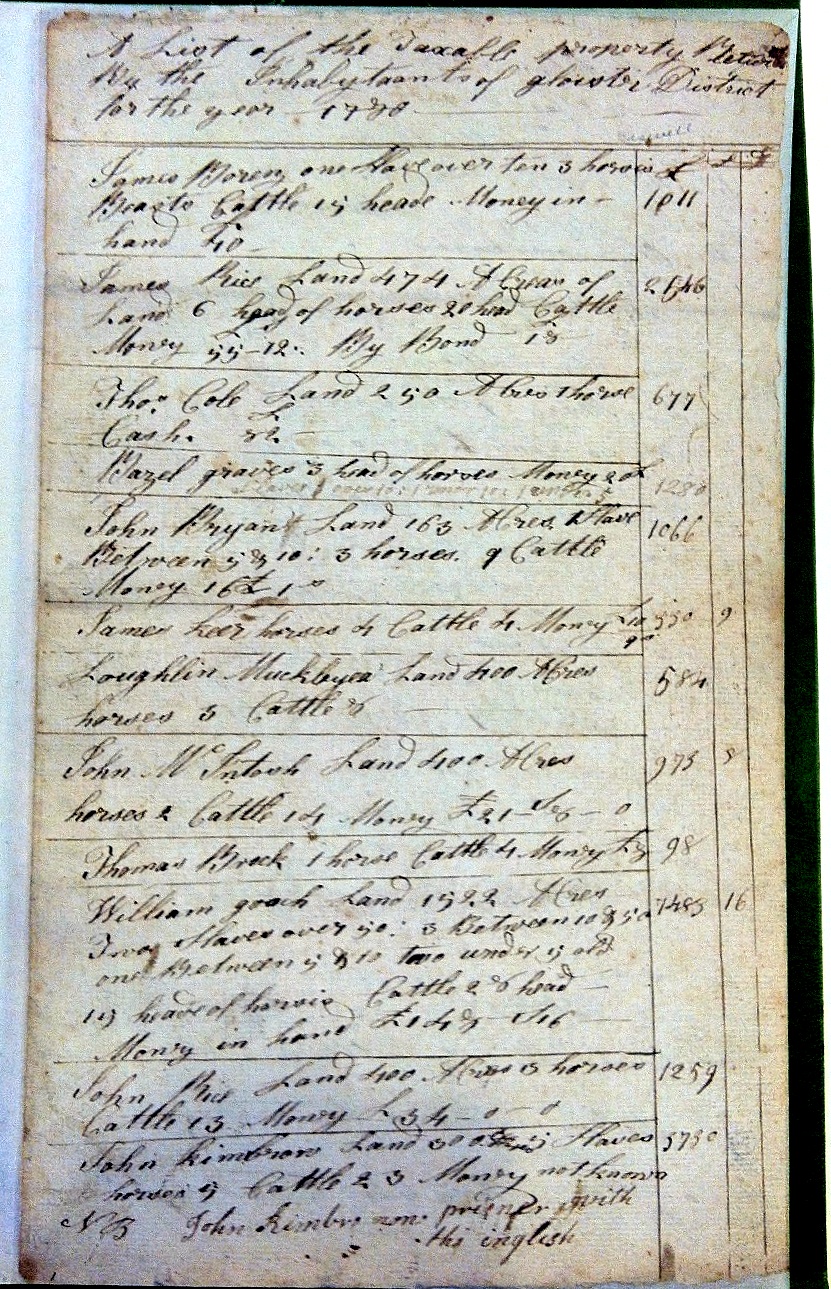 A List of the Taxable property Retur
By the Inhabytaants of gloster District
for the year 1780
£
James Boren one Slave over ten 3 horses 1011
Beasts Cattle 15 heade Money in
hand £10
James Rice Land 474 ACreas of 2546
Land 6 head of horses 20 head Cattle
Money 55-12 By Bond 18
Thos. Cole Land 250 ACres 1 horse 677
Cash. £82
Bazel graves 3 head of horses Money 20£ 1280
John Bryant Land 163 ACres, 1 Slave 1066
Between 5 & 10: 3 horses. 9 Cattle
Money 16£ 1s
James Keer horses 4 Cattle 4 Money £10 550 9
Loughlin Land 400 ACres 584
horses 3 Cattle 8
John Mc Intosh Land 400 ACres 973 8
horses 2 Cattle 14 Money £21-S8-0
Thomas Brock 1 horse Cattle 4 Money £3 98
William goach Land 1522 ACres 7483 16
Two Slaves over 50: 3 Between 10 & 50
one Between 5 & 10 two under 5 old
15 heade of horses Cattle 28 head
Money in hand £148 S16
John Rice Land 400 ACres 3 horses 1259
Cattle 13 Money £34-0-0
John Kimbrow Land 300 5 Slaves 3730
horses 5 Cattle 23 Money not known
NB John Kimbro now prisner with
the inglish